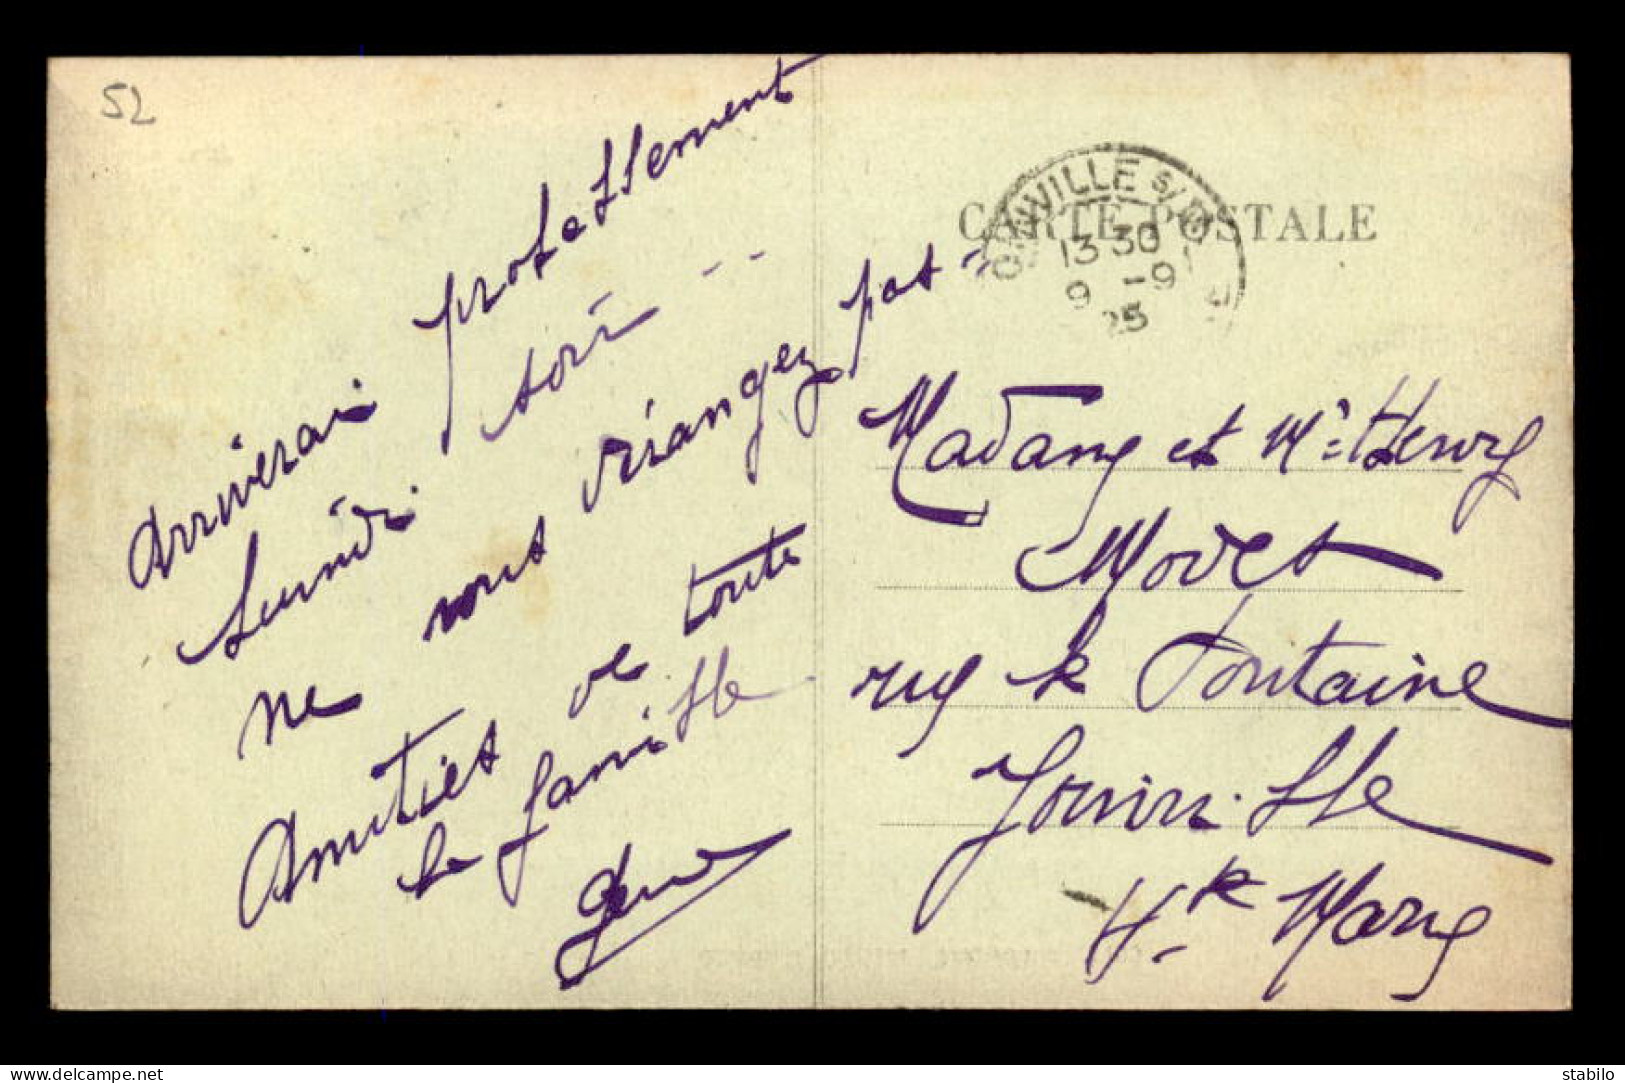 52
Arriverai probablement
lundi soir --
ne vous dérangez pas --
Amitiés de toute
la famille
CARTE POSTALE
13 30
9 -9
25
Madame et Mr Henry
rue la Fontaine
Joinville
Hte Marne
www.delcampe.net
stabilo